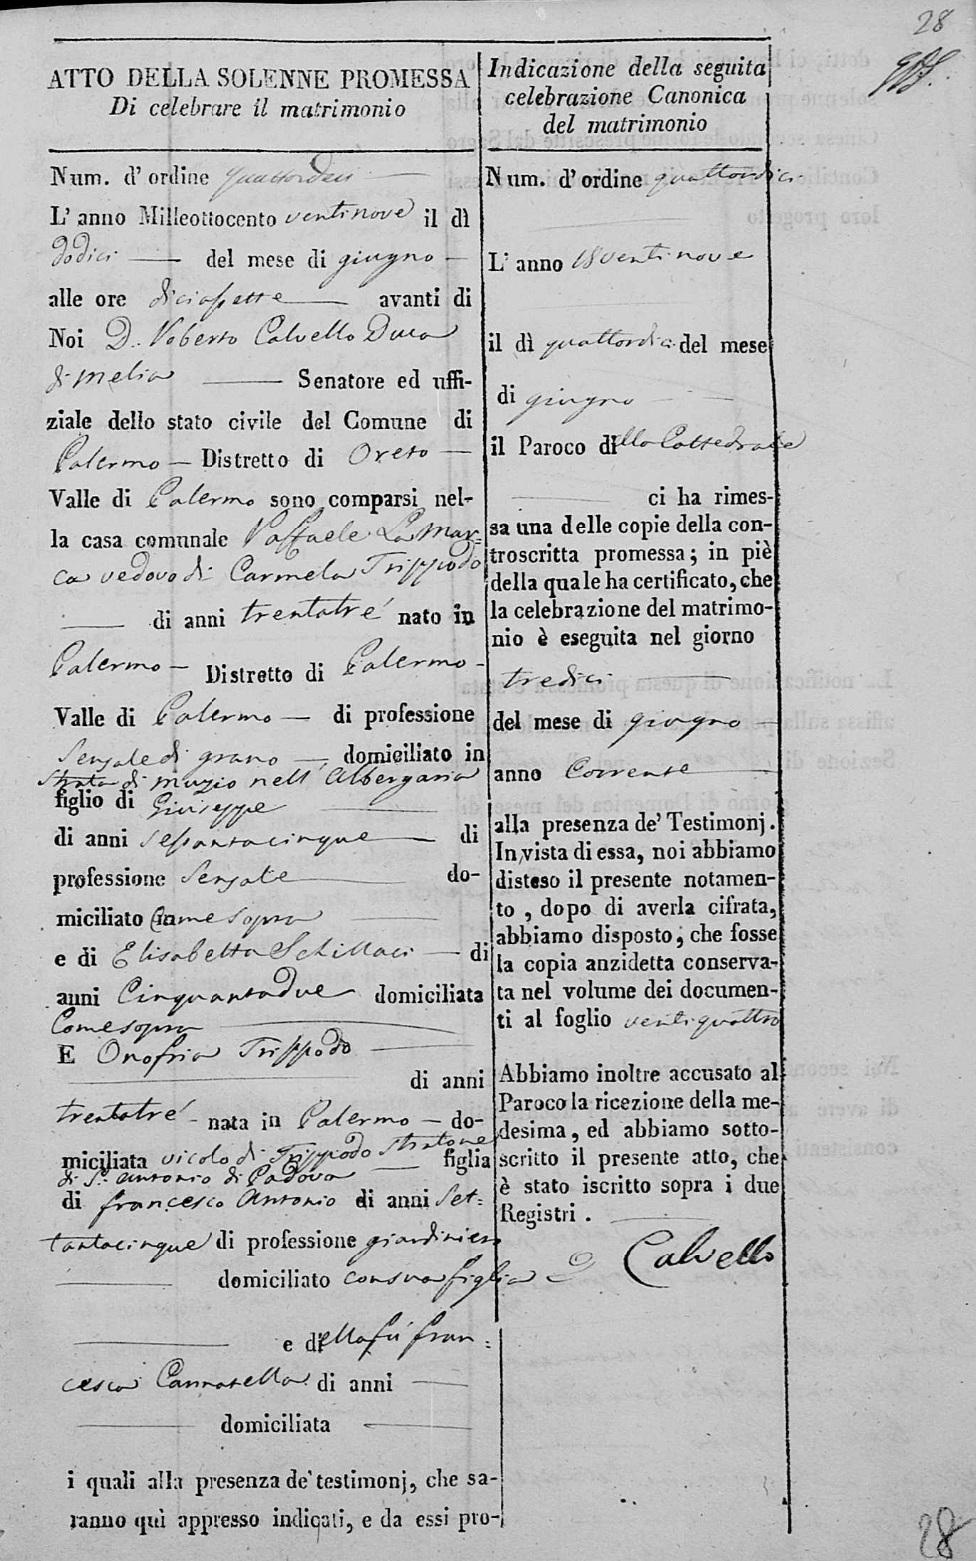 28
ATTO DELLA SOLENNE PROMESSA
Di celebrare il matrimonio
Num. d' ordine quattordici
L' anno Milleottocento ventinove il dì
dodici — del mese di giugno —
alle ore diciassette — avanti di
Noi D. Roberto Calvello Duca
di Melia — Senatore ed uffi-
ziale dello stato civile del Comune di
Palermo — Distretto di Oreto —
Valle di Palermo sono comparsi nel-
la casa comunale Raffaele La Mar=
ca vedovo di Carmela Trippodo
— di anni trentatré nato in
Palermo — Distretto di Palermo -
Valle di Palermo — di professione
Senzale di grano — domiciliato in
Strata di Muzio nell' Albergaria
figlio di Giuseppe
di anni sessantacinque — di
professione Senzale — do-
miciliato in Come sopra —
e di Elisabetta Schillaci — di
anni Cinquantadue domiciliata
Come sopra —
E Onofria Trippodo —
di anni
trentatré - nata in Palermo — do-
miciliata vicolo di Trippodo Stratone
di S. Antonio di Padova — figlia
di francesco Antonio di anni Set=
tantacinque di professione giardiniero
— domiciliato con sua figlia
— e di ella fù fran=
cesca Cannatella di anni —
— domiciliata —
i quali alla presenza de' testimonj, che sa-
ranno quì appresso indicati, e da essi pro-
Indicazione della seguita
celebrazione Canonica
del matrimonio
Num. d' ordine quattordici
L' anno 18ventinove
il dì quattordici del mese
di giugno —
il Paroco di lla Cattedrale
— ci ha rimes-
sa una delle copie della con-
troscritta promessa; in piè
della quale ha certificato, che
la celebrazione del matrimo-
nio è eseguita nel giorno
tredici —
del mese di giugno —
anno Corrente —
alla presenza de' Testimonj.
In vista di essa, noi abbiamo
disteso il presente notamen-
to, dopo di averla cifrata,
abbiamo disposto, che fosse
la copia anzidetta conserva-
ta nel volume dei documen-
ti al foglio ventiquattro
Abbiamo inoltre accusato al
Paroco la ricezione della me-
desima, ed abbiamo sotto-
scritto il presente atto, che
è stato iscritto sopra i due
Registri.
Calvello
28